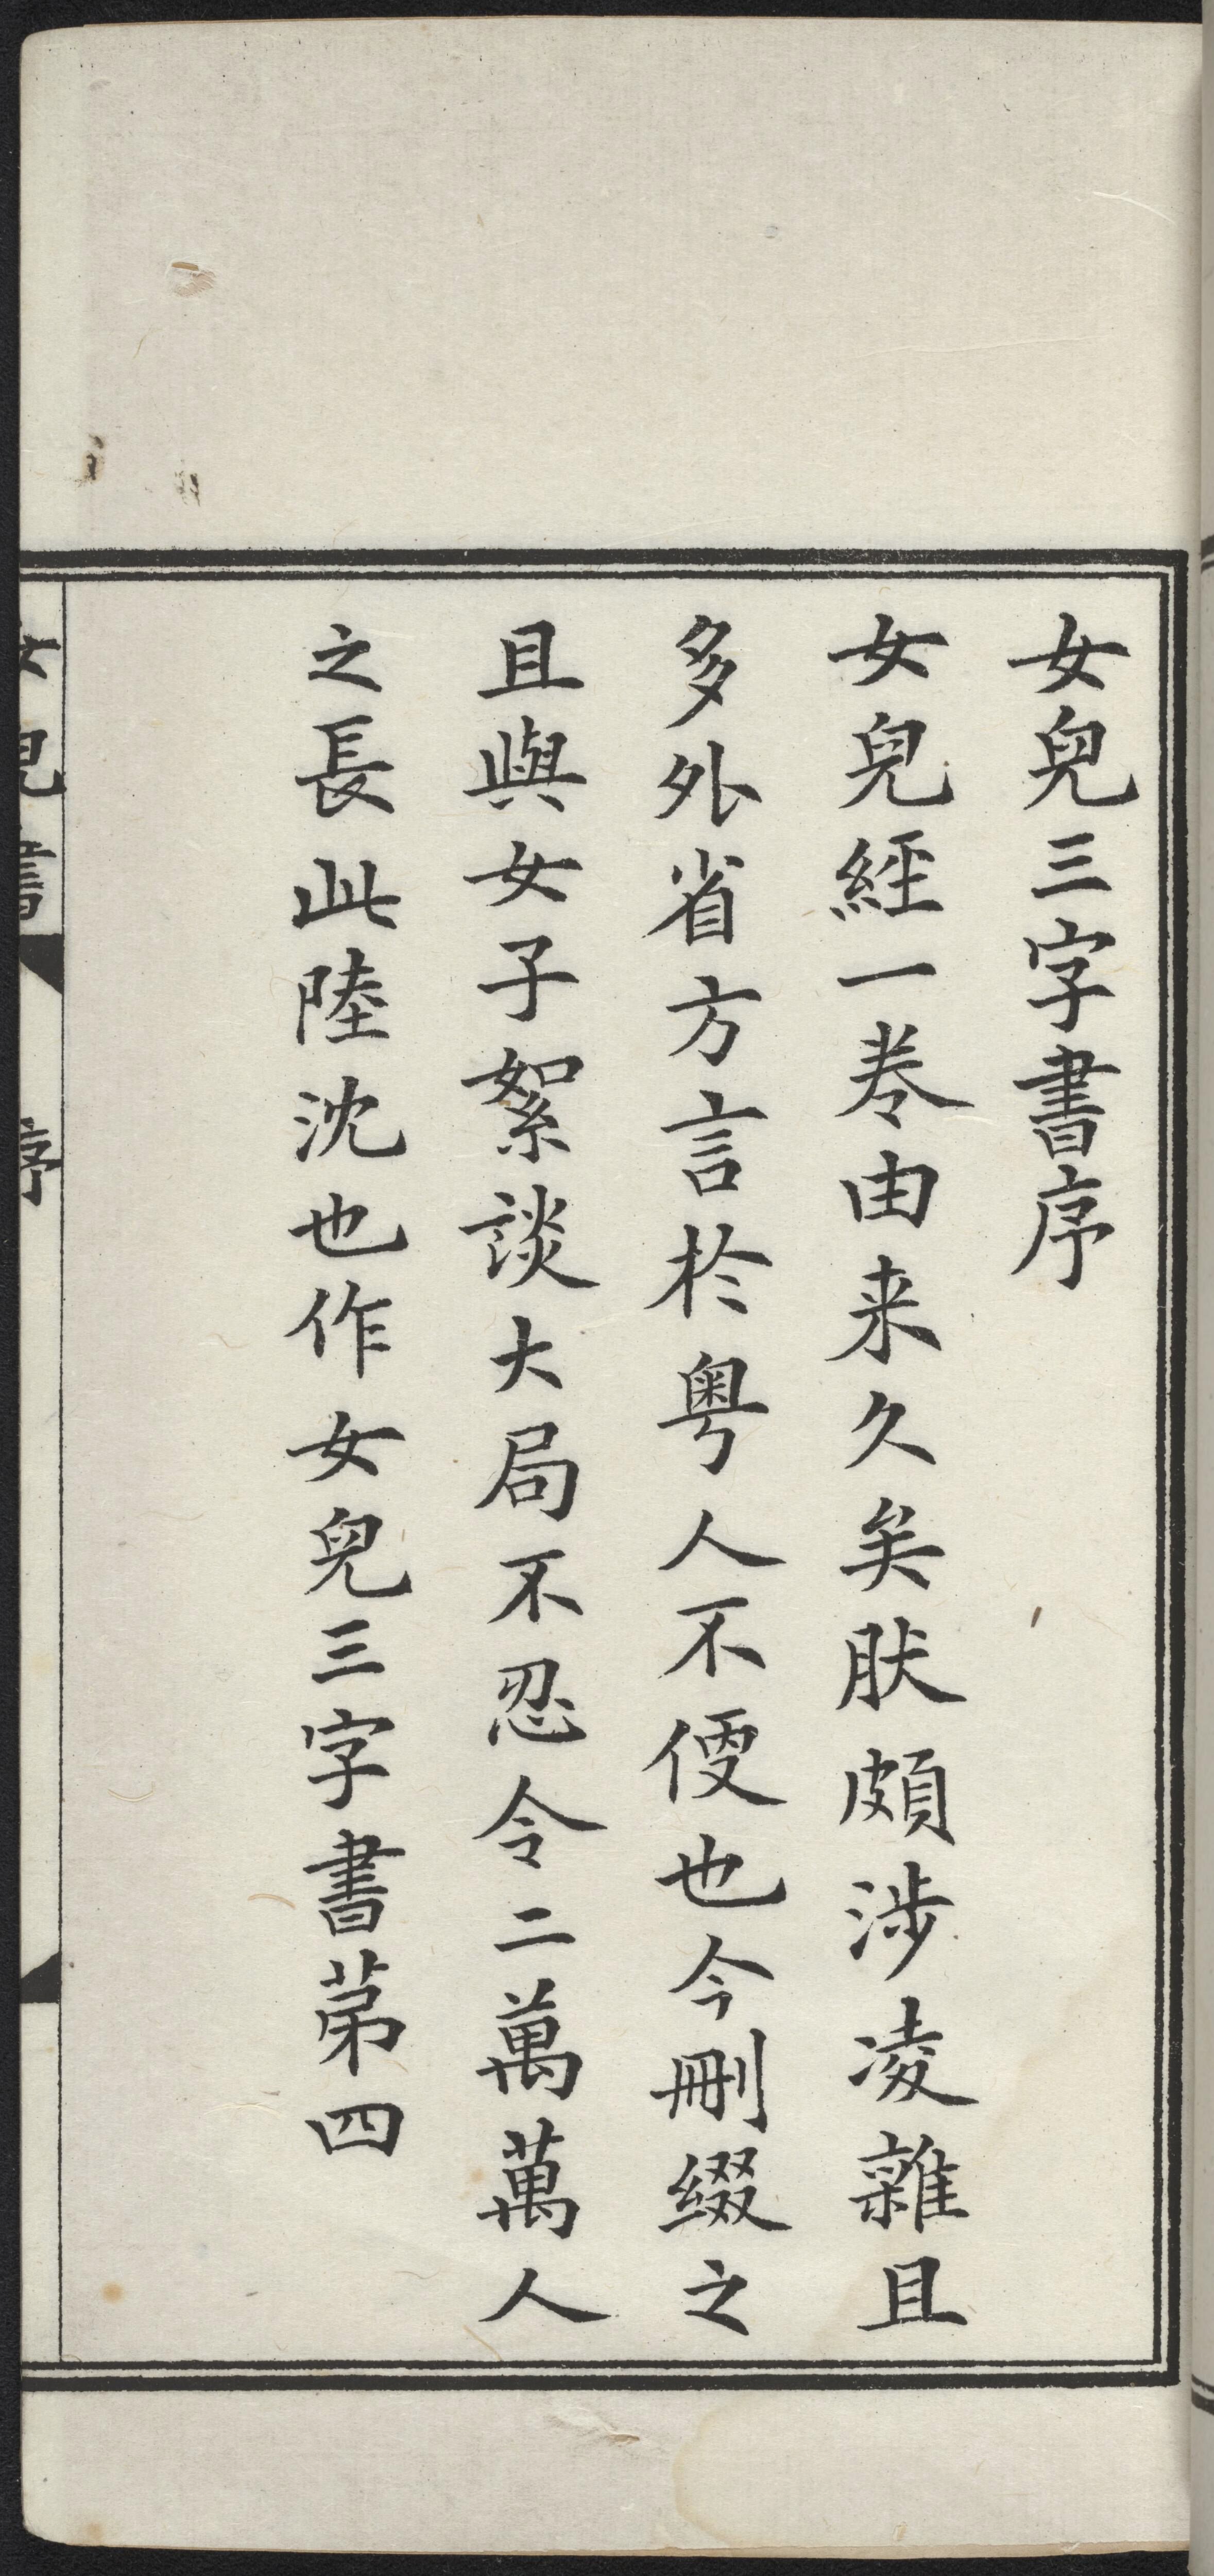 女兒三字書序
女兒經一卷由来久矣肰頗涉凌雜且
多外省方言於粤人不便也今刪綴之
且與女子絮談大局不忍令二萬萬人
之長此陸沈也作女兒三字書苐四
女兒書 序